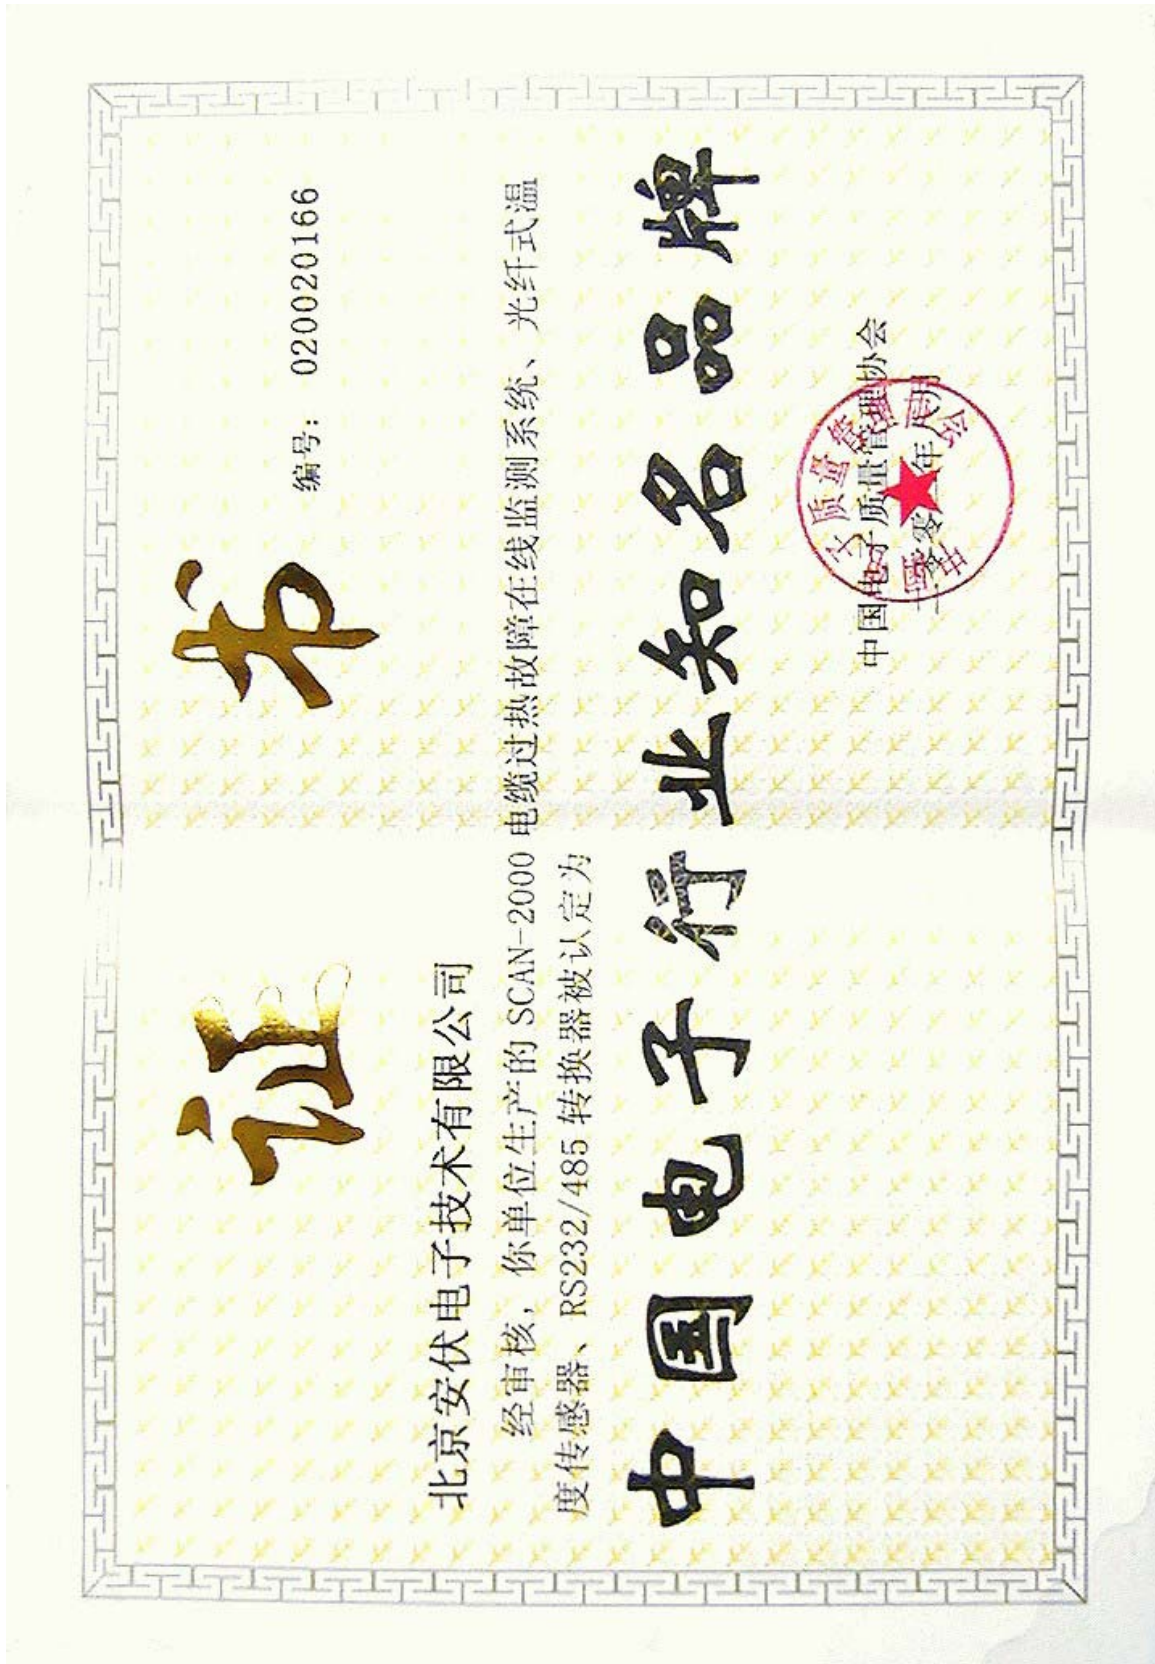 证书
编号： 020020166
北京安伏电子技术有限公司
经审核，你单位生产的 SCAN-2000 电缆过热故障在线监测系统、光纤式温
度传感器、RS232/485 转换器被认定为
中国电子行业知名品牌
中国电子质量管理协会
二零零二年八月